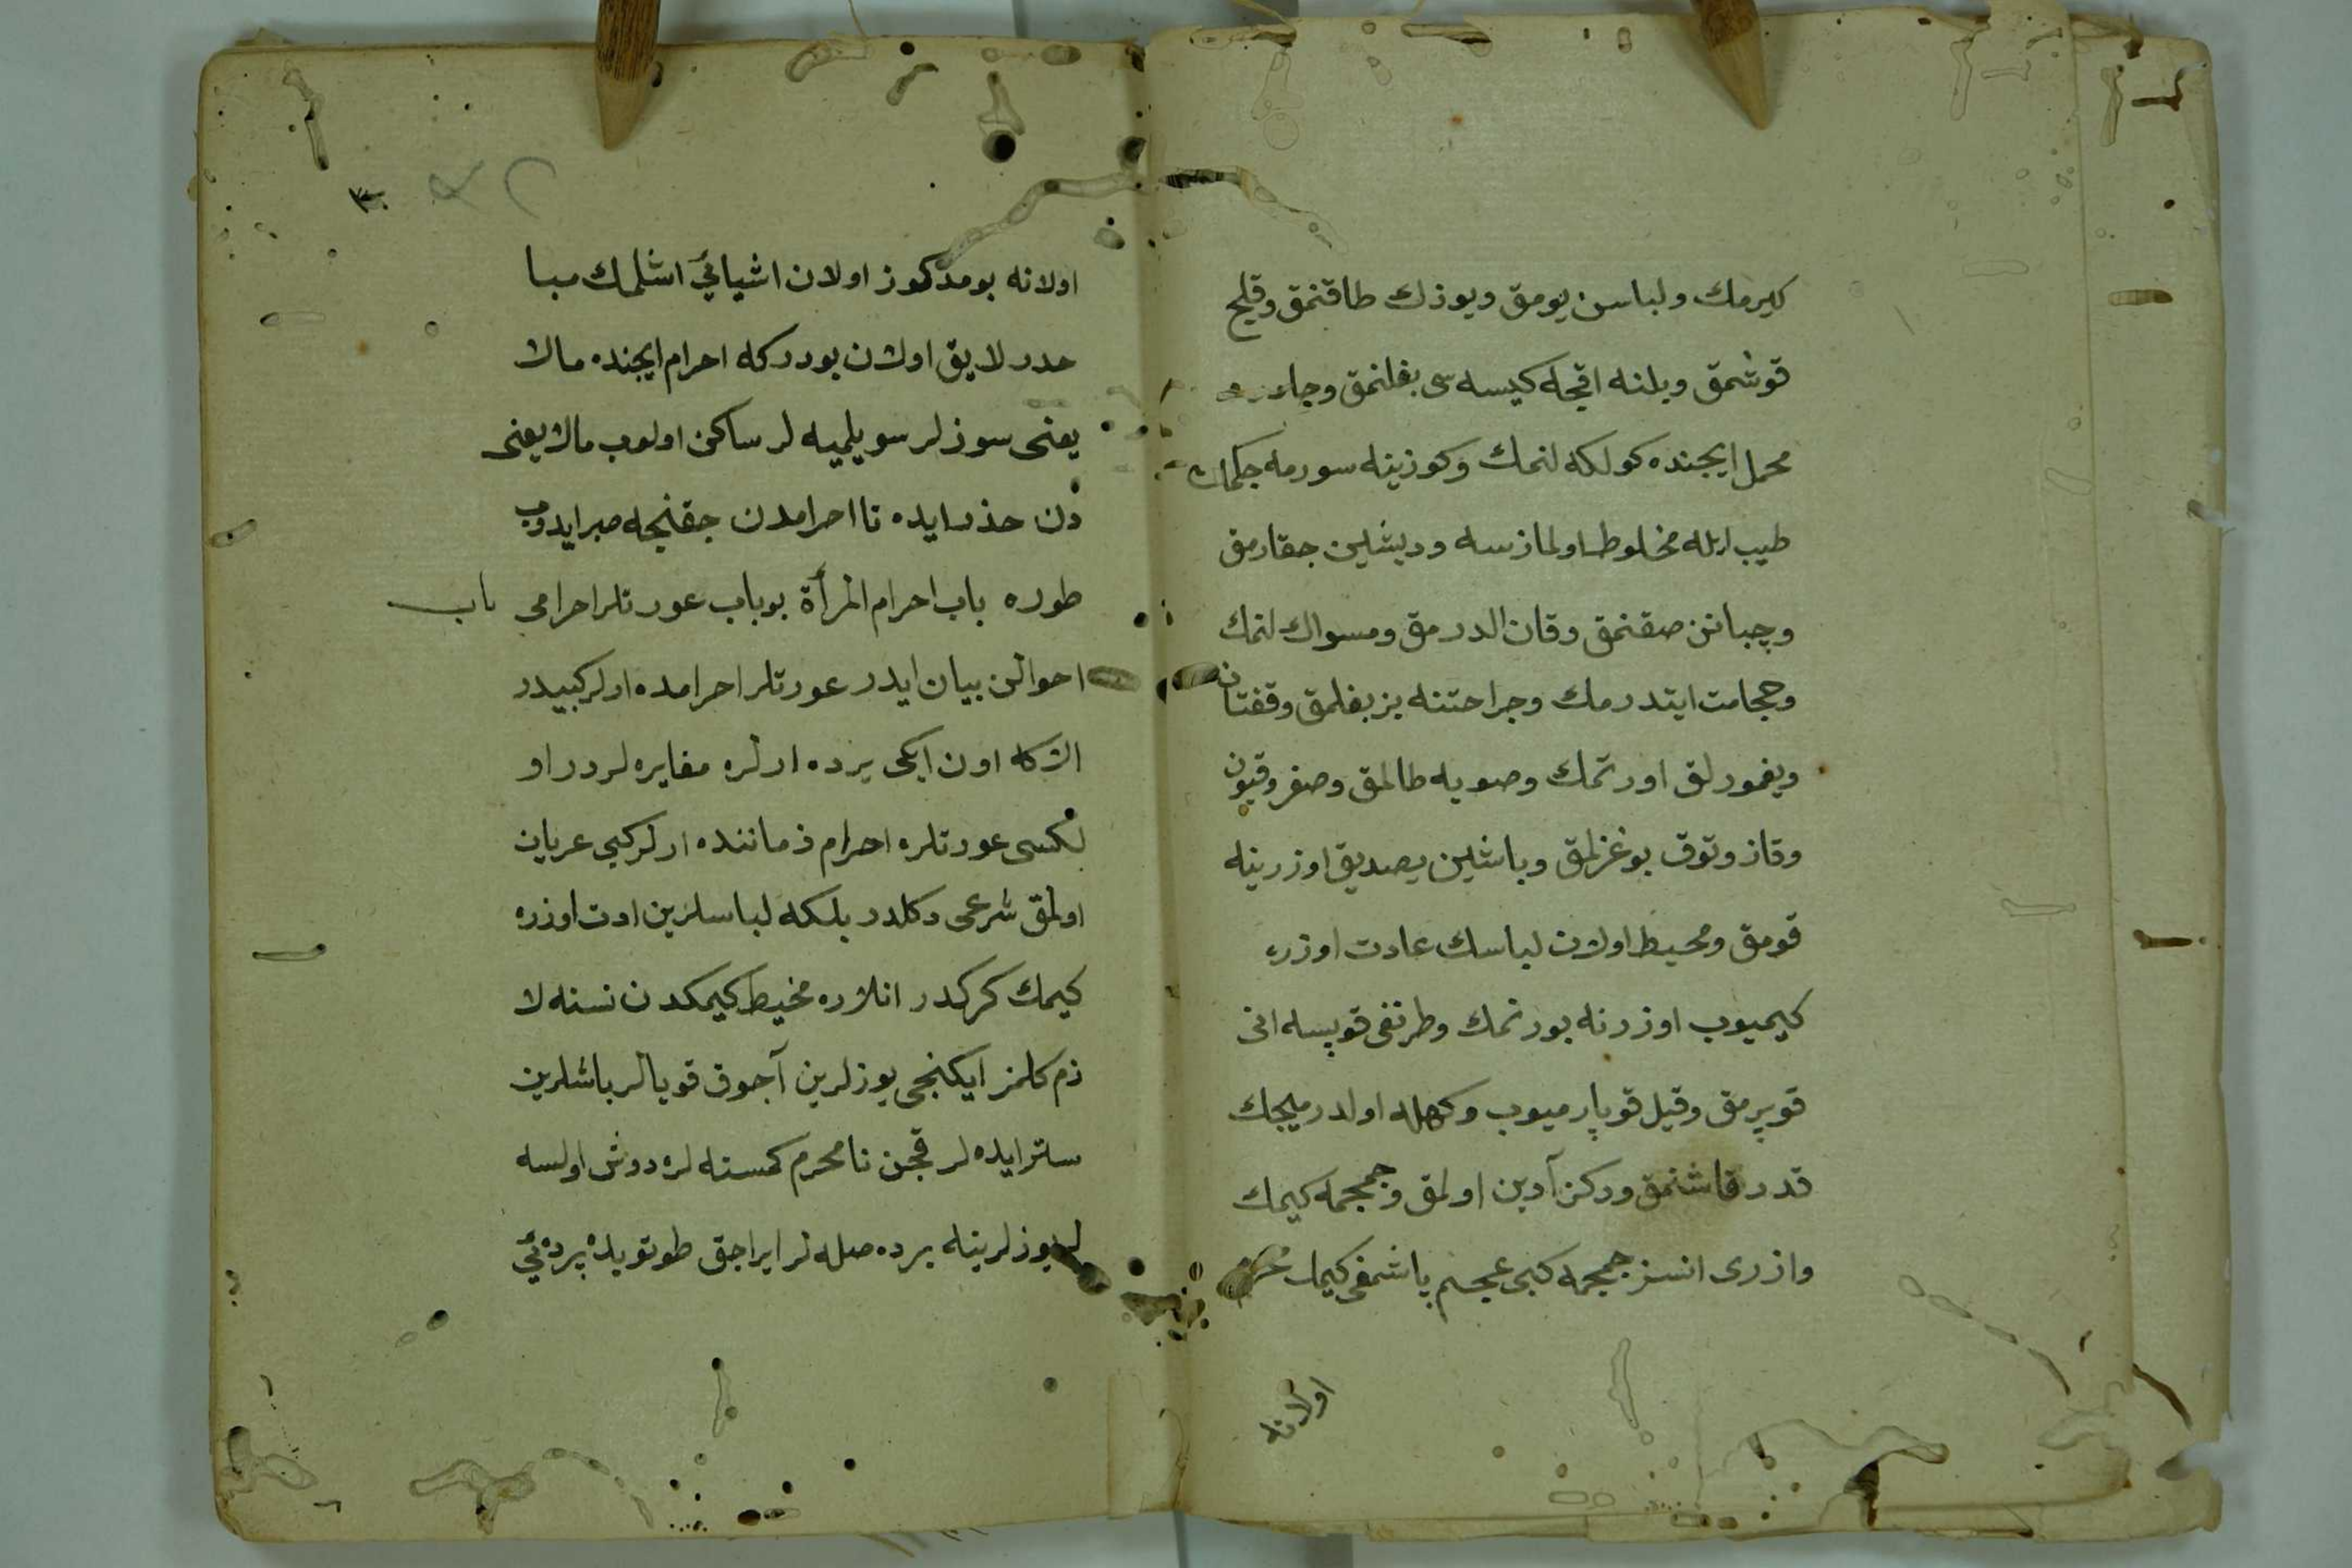 كيرمك ولباسن يومق ويوزك طاقنمق وقليج
قوشمق وبلنه اقچه كيسه سى بغلنمق وچادر
محمل ايچنده كولكه لنمك وكوزينه سورمه چكمك
طيب ايله مخلوط اولمازسه وديشلين چقارمق
وچبانن صقنمق وقان الدرمق ومسواك لنمك
وحجامت ايتدرمك وجراحتنه بز بغلمق وقفتان
ويغمورلق اورتمك وصويه طالمق وصغر وقيون
وقاز وتوق بوغزلمق وباشين يصديق اوزرينه
قومق ومحيط اولان لباسك عادت اوزره
كيميوب اوزرنه بورنمك وطرنغى قوپسه انى
قوپرمق وقيل قوپارميوب وكهله اولدرميجك
قدر قاشنمق وركن آدين اولمق وجمجمه كيمك
وازرى انسز جمجمه كبى عجم باشمغى كيمك محرم
اولانه
اولانه بو مذكور اولان اشيائي اشلمك مبا
حدر لايق اولان بودركه احرام ايچنده مالا
يعنى سوزلر سويلميه لر ساكن اولوب مالا يعنى
دن حذر ايده تا احرامدن چقنجه صبر ايدوب
طوره باب احرام المرأة بو باب عورتلر احرامى باب
احوالن بيان ايدر عورتلر احرامده ارلر كبيدر
الا كه اون ايكى يرده ارلره مغايره لردر او
لكسى عورتلره احرام زماننده ارلر كبى عريان
اولمق شرعى دكلدر بلكه لباسلرين ادت اوزره
كيمك كركدر انلاره مخيط كيمكدن نسنه لا
زم كلمز ايكنجى يوزلرين آچوق قويالر باشلرين
ستر ايده لر قچن نامحرم كمسنه لره دوش اولسه
لر يوزلرينه پرده صله لر ايراجق طوتويله پرده ئي